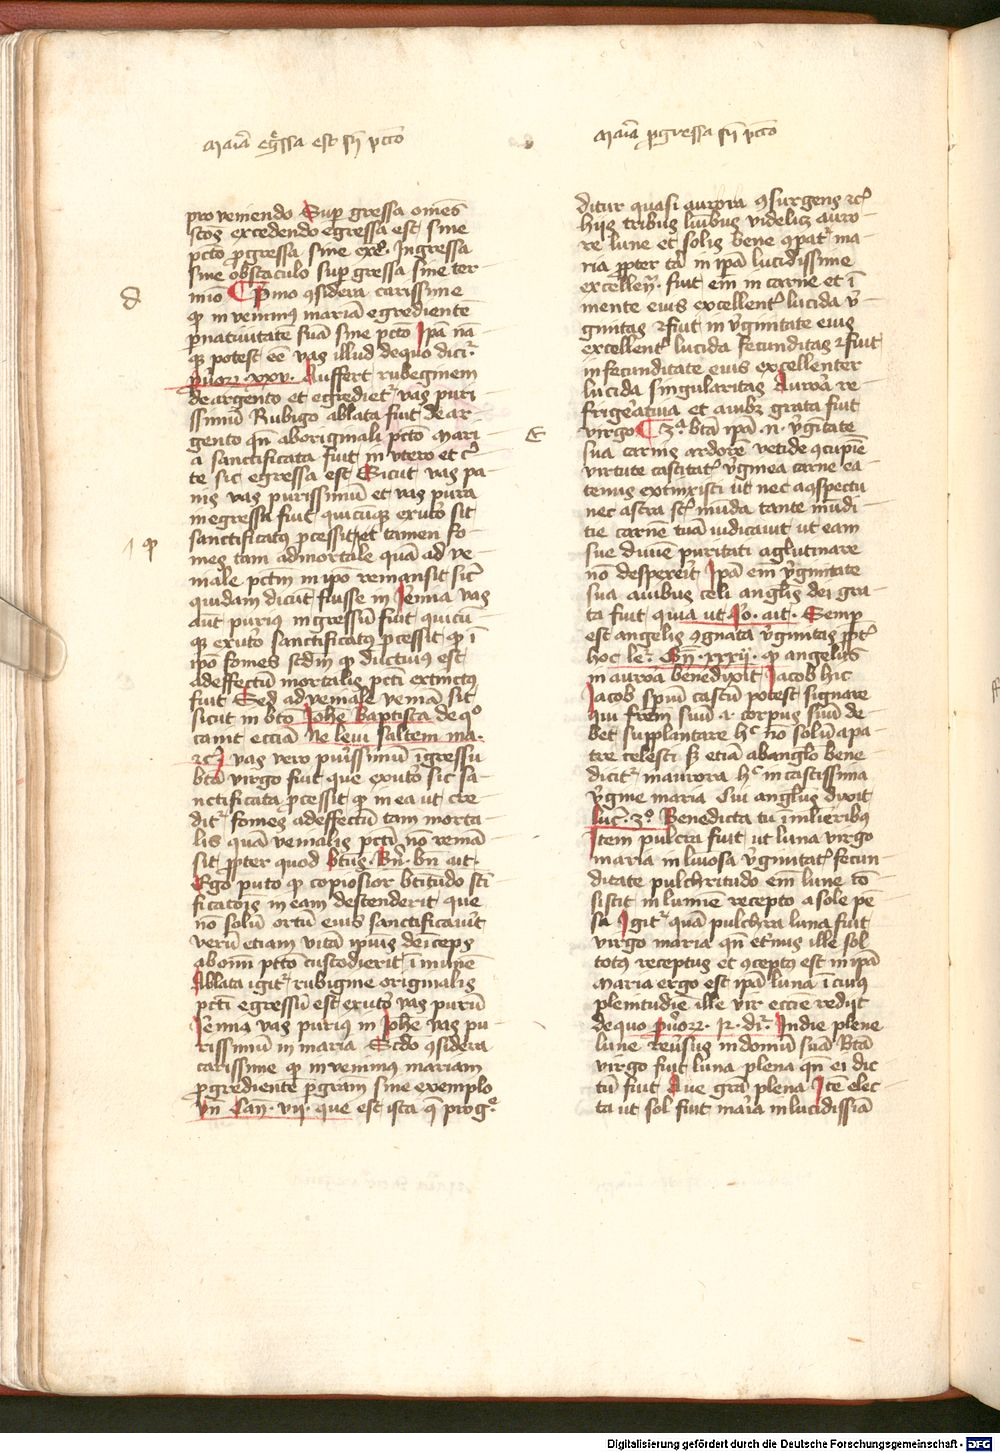 Maria egressa est sn pcco
Maria pgressa sn pcco
pro veniendo Sup gressa omes
scos excedendo egressa est, sine
pcto pgressa sine exo. Ingressa
sine obstaculo sup gressa sine ter
mio Pmo 9sidera carissime
d
qp invenimus maria egrediente
pnativitate sua sine pcto Ipa na
qz potest ee vas illud dequo dicir
puorz. xxv. Auffert rubeginem
deargento et egrediet vas puri
ssimu Rubigo ablata fuit de ar
gento qn aboriginali pcto Mari
a sanctificata fuit in utero et c
te sic egressa est Sicut vas pa
nis vas purissimu et vas pura
ingressu fuit quicuqz exuto sit
sanctificatus pcessit et tamen fo
mes tam admortale qua ad ve
niale pctm in ipo remansit sic
quidam dicut fuisse in Jeremia vas
aut purius ingressu fuit quicu
qz exuto sanctificatus pcessit qp i
ipo fomes scdm qp dictius est
adeffectu mortalis pcti extinctus
fuit Sed ad veniale venia sit
sicut in bto Johe Baptista dequo
canit ecclia Ne levi saltem ma.
rc vas vero purissimu igressu
bta virgo fuit que exuto sic sa
nctificata pcessit qp in ea ut cre
dit fomes adeffectu tam morta
lis qua venialis pcti no rema
sit ppter quod btus. Bn. bn ait.
Ergo puto qp copiosior btitudo scti
ficatois in eam descenderit que
no solu ortu eius sanctificauit
veru etiam vita ipius deiceps
abomi pcto custodierit imune
Ablata igit rubigine originalis
pcti egressu est exuto vas puru
Jeremia vas purius in Johe vas pu
rissimu in maria Scdo 9sidera
carissime qp invenimus mariam
pgrediente pgram sine exemplo
vn Can. vii. que est ista q prog
ditur quasi aurora 9surgens rc
hijs tribus lucibus videlicz auro
re lune et solis bene 9pat ma
ria ppter ta in ipa lucidissime
excellen. fuit em in carne et i
mente eius excellent lucida v
ginitas 2fuit in vginitate eius
excellent lucida fecunditas 2fuit
infecunditate eius excellenter
lucida singularitas Aurora re
frigeratiua et auibz grata fuit
virgo 3a bta ipa .n. vgitate
E
sua carnis ardore vetide 9cupie
virtute castitat vginea carne ea
tenus extinxisti ut nec aqspectu
nec astra sct muda tante mudi
tie carne tua iudicauit ut eam
sue diuie puritati aglutinare
no despexeit Ipa em vginitate
sua auibus celi anglis dei gra
ta fuit quia ut Jo. ait. Semp
est angelis 9gnata vginitas ppt
hoc le. Gn. xxxij. qp angelus
in aurora benedixit Jacob hic
Jacob spium castu potest signare
qui frem suu .i. corpus suu de
bet supplantare h no solu apa
tre celesti sz etia abanglo bene
dicit inaurora h in castissima
vgine maria Cui anglus dixit
luc. 3o. Benedicta tu imlieribus
Item pulcra fuit ut luna virgo
maria in luiosa vginitat fecun
ditate pulchritudo em lune co
sistit in lumine recepto asole pe
sa Igit qua pulchra luna fuit
virgo maria qn etnus ille sol
totus receptus et 9ceptus est in ipa
Maria ergo est ipa luna icuius
plenitudie ille vir ecclie redijt
dequo puorz. 12. di. Indie plene
lune reusus indomu sua Bta
virgo fuit luna plena qn ei dic
tu fuit Aue gra plena Ite elec
ta ut sol fuit maia inlucidissia
Digitalisierung gefördert durch die Deutsche Forschungsgemeinschaft - DFG